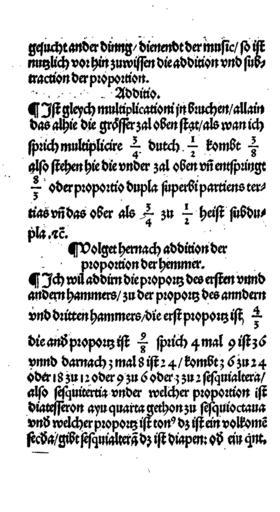 gesucht ander dinng/ dienendt der music/ so ist
nutzlich vor hin zuwissen die addition vnd sub-
traction der proportion.
Additio.
¶ Ist gleych multiplicationi in bruchen/ allain
das alhie die grösser zal oben stat/ als wan ich
sprich multiplicire 3/4 dutch 1/2 kombt 3/8
also stehen hie die vnder zal oben vñ entspringt
8/3 oder proportio dupla superbi partiens ter-
tias vñ das ober als 3/4 zu 1/2 heist subdu-
pla .ꝛc.
¶ Volget hernach addition der
proportion der hemmer.
¶ Ich wil addirn die proportz des ersten vnnd
andern hammers/ zu der proportz des anndern
vnd dritten hammers/ die erst proportz ist/ 4/3
die and proportz ist 9/8 sprich 4 mal 9 ist 36
vnnd darnach 3 mal 8 ist 24/ kombt 36 zu 24
oder 18 zu 12 oder 9 zu 6 oder 3 zu 2 sesquialtera/
also sesquitertia vnder welcher proportion ist
diatesseron ayn quarta gethon zu sesquioctaua
vnd welcher proportz ist ton⁹ dz ist ein volkomē
secda/ gibt sesquialterā dz ist diapen: od ein qnt.